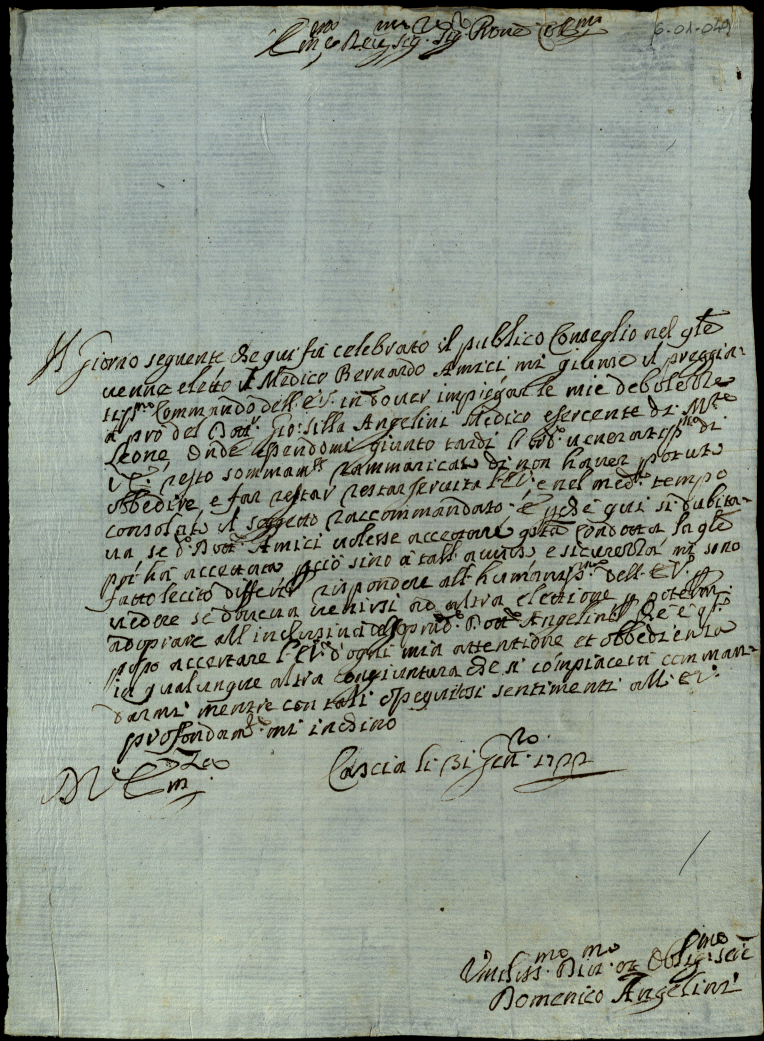 Em.mo e Rev.mo Sig.r Sig.r Prone Col.mo
6-01-049
Il Giorno seguente che qui fù celebrato il publico Conseglio nel q.le
venne eletto il Medico Bernardo Amici mi giunse il preggia-
tiss.mo Commando dell'E.V. in dover impiegar le mie debolezze
à prò del Dott.r Gio: Silla Angelini Medico esercente di M.te
Leone, onde essendomi giunto tardi l'ord.e veneratiss.mo di
V.E. resto sommam.te rammaricato di non haver potuto
obbedire e far restar restar servita l'E.V., e nel med.mo tempo
consolato il soggetto raccommandato. E perche qui si dubita-
va se d.o Dott.r Amici volesse accettare q.sta Condotta la q.le
poi hà accettata perciò sino à tall' avviso e sicurezza mi sono
fatto lecito differir rispondere all' humaniss.ma dell' E.V. p
vedere se doveva venirsi ad altra elettione p potermi
adoprare all' inclusiva del pred.o Dott.r Angelini. Che è q.to
posso accertare l'E.V. d'ogni mia attentione et obbedienza
in qualunque altra congiuntura che si compiacerà comman-
darmi mentre con tali ossequiosi sentimenti all' E.V.
profondam.te mi inchino
D. V. Em.za Cascia li 31 Gen.ro 1722
Umiliss.mo Div.mo et Oblig.mo Ser.e
Domenico Angelini